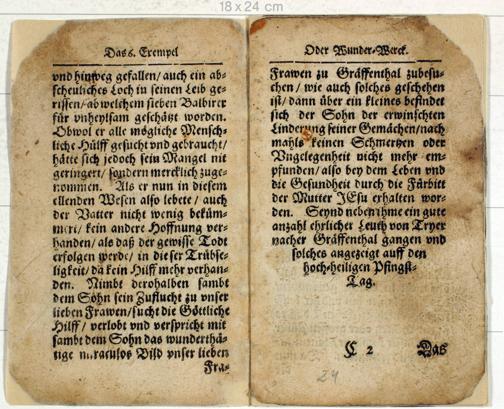 18 x 24 cm
Das 6. Exempel
vnd hinweg gefallen/ auch ein ab-
scheuliches Loch in seinen Leib ge-
rissen/ ab welchem sieben Balbirer
für vnheylsam geschätzt worden.
Obwol er alle mögliche Mensch-
liche Hülff gesucht vnd gebraucht/
hätte sich jedoch sein Mangel nit
geringert/ sondern mercklich zuge-
nommen. Als er nun in diesem
ellenden Wesen also lebete/ auch
der Vatter nicht wenig beküm-
mert/ kein andere Hoffnung ver-
handen/ als daß der gewisse Todt
erfolgen werde/ in dieser Trübse-
ligkeit/ da kein Hilff mehr verhan-
den. Nimbt derohalben sambt
dem Sohn sein Zuflucht zu vnser
lieben Frawen/ sucht die Göttliche
Hilff/ verlobt vnd verspricht mit
sambt dem Sohn das wunderthä-
tige miraculos Bild vnser lieben
Fra-
Oder Wunder-Werck.
Frawen zu Gräffenthal zubesu-
chen/ wie auch solches geschehen
ist/ dann über ein kleines befindet
sich der Sohn der erwinschten
Linderung seiner Gemächen/ nach
mahls keinen Schmertzen oder
Vngelegenheit nicht mehr em-
pfunden/ also bey dem Leben vnd
die Gesundheit durch die Fürbitt
der Mutter JEsu erhalten wor-
den. Seynd neben ihme ein gute
anzahl ehrlicher Leuth von Tryer
nacher Gräffenthal gangen vnd
solches angezeigt auff den
hoch-heiligen Pfingst-
Tag.
C 2 Das
24